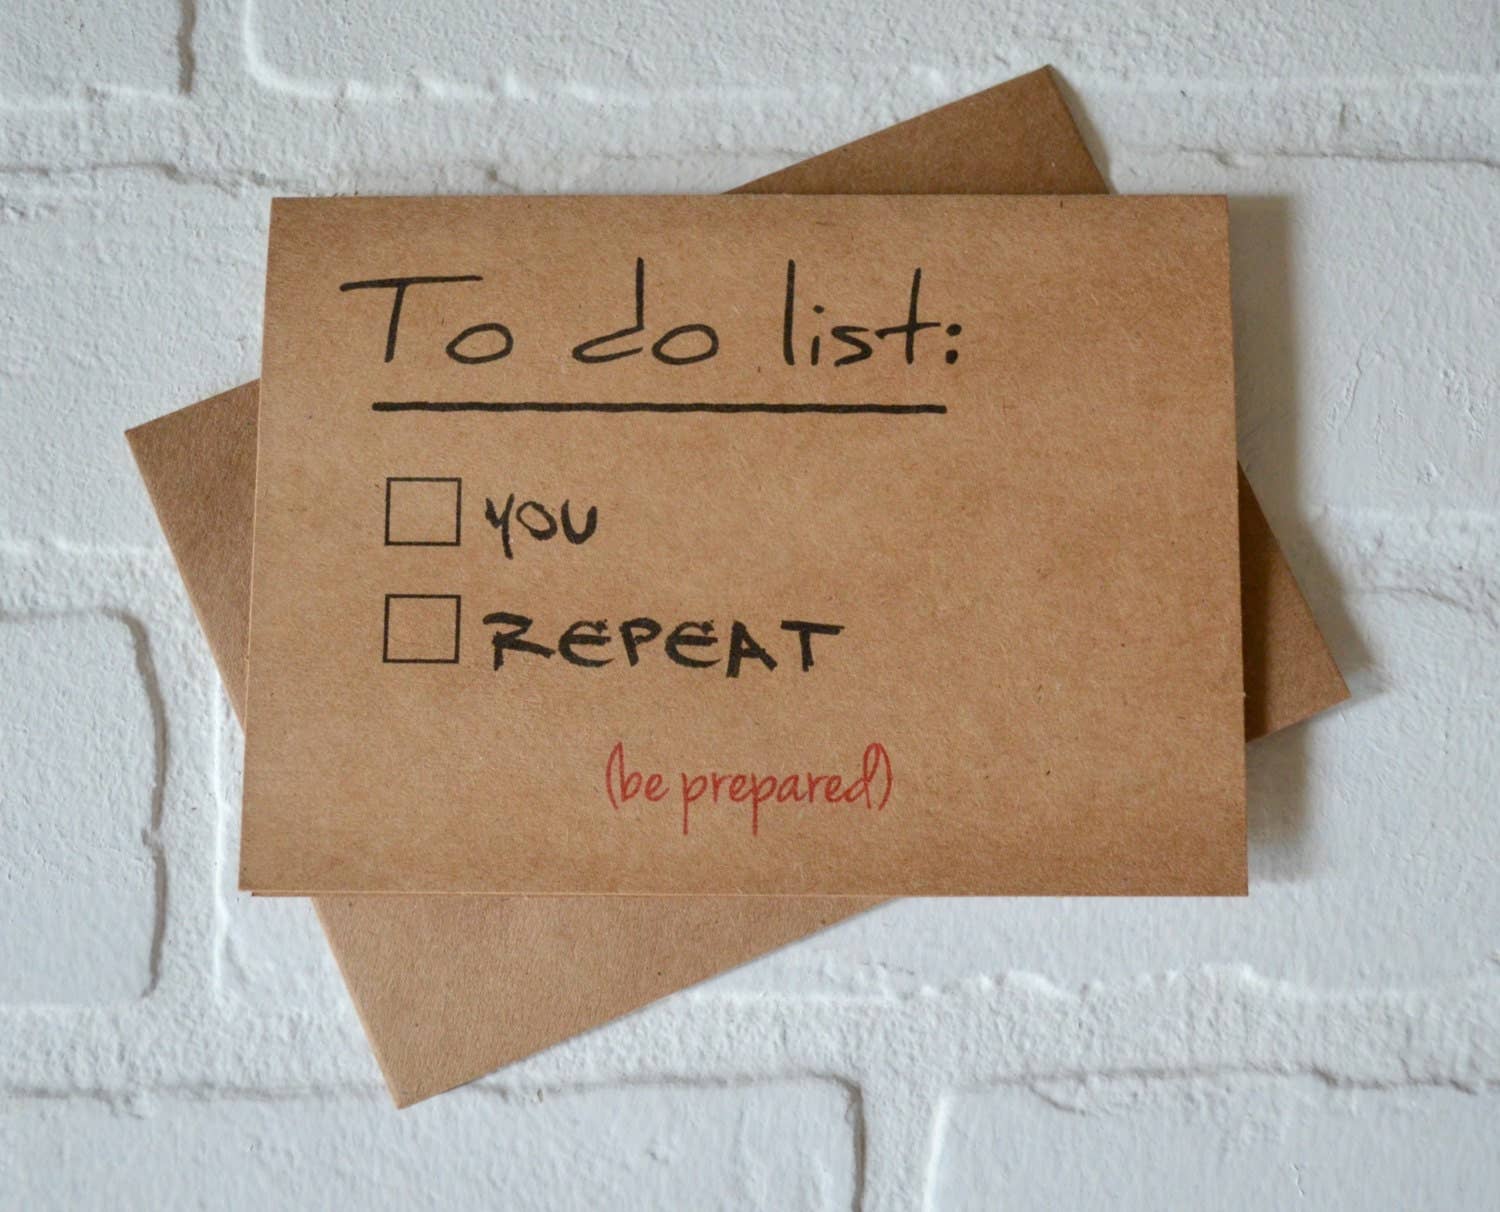 To do list:
YOU
REPEAT
(be prepared)